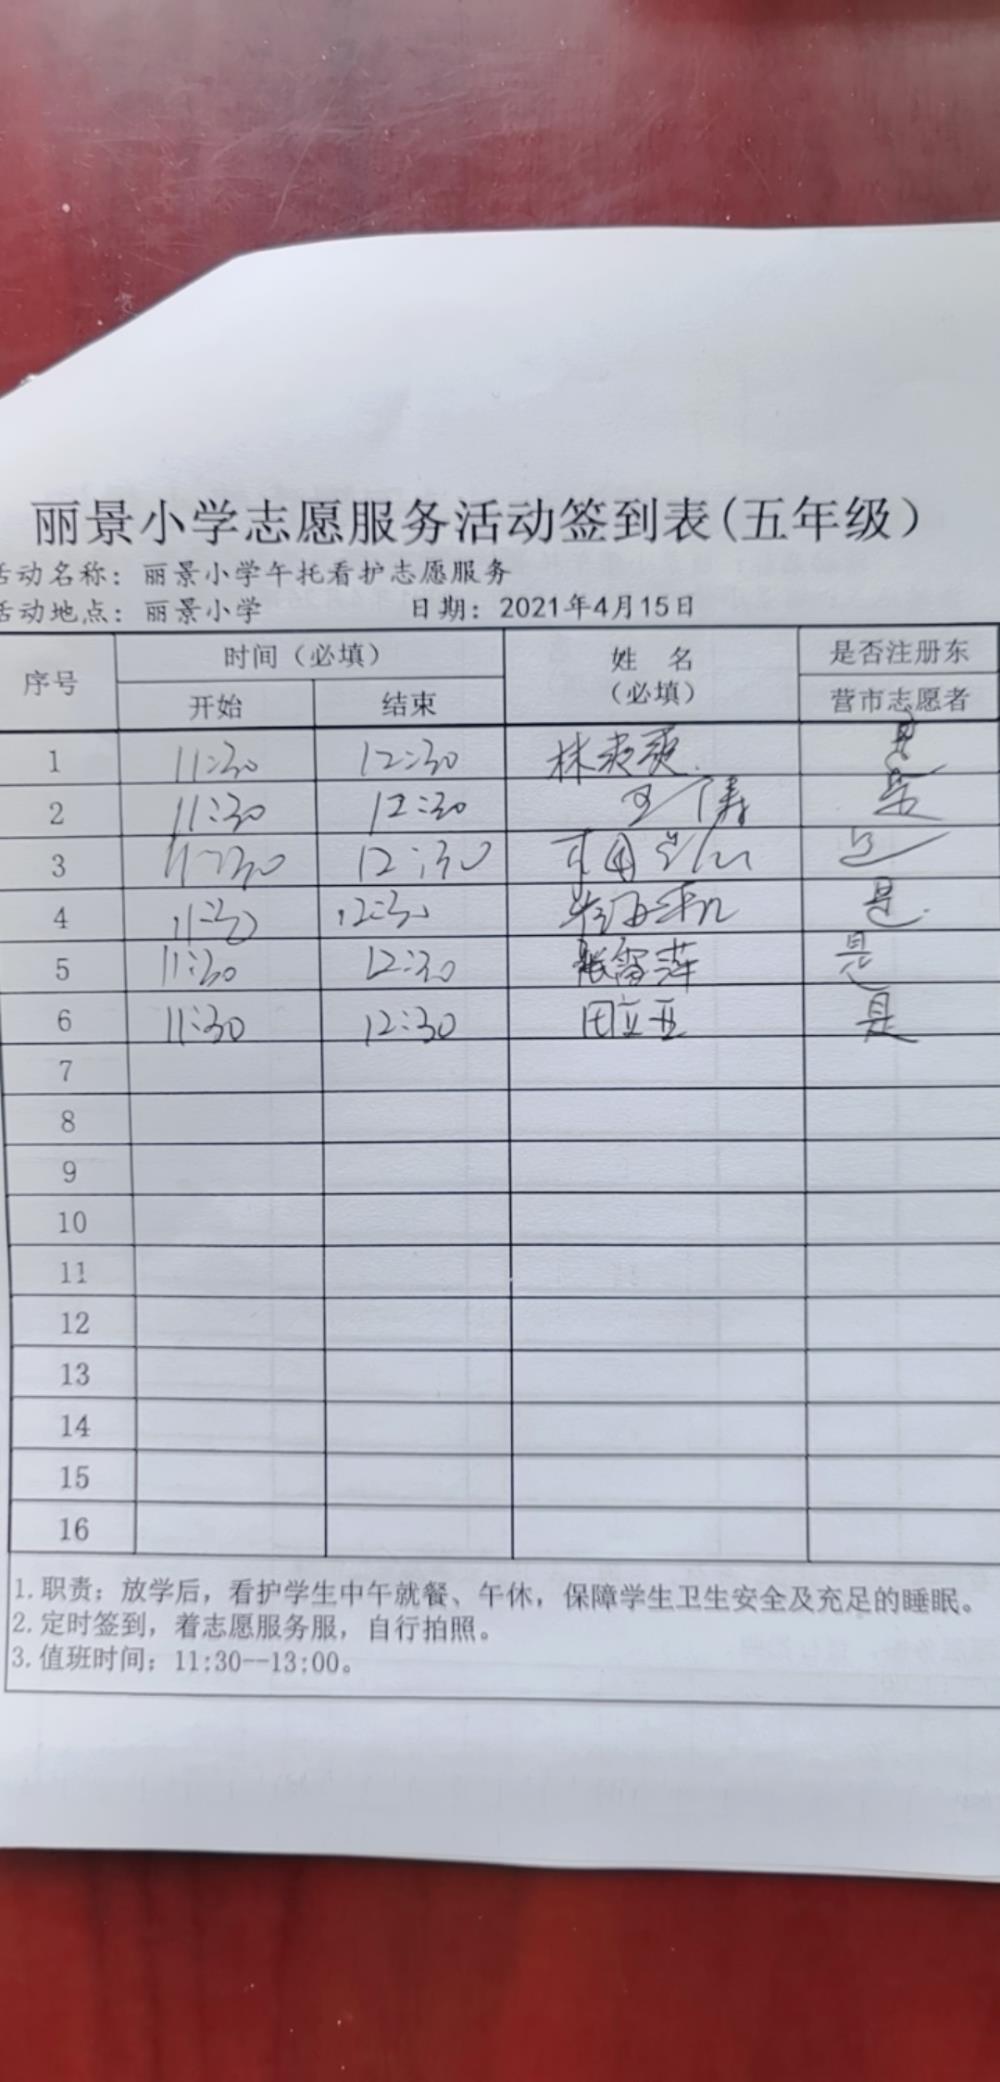 丽景小学志愿服务活动签到表(五年级）
活动名称：丽景小学午托看护志愿服务
活动地点：丽景小学 日期：2021年4月15日
序号 时间（必填） 姓 名（必填） 是否注册东营市志愿者
开始 结束
1 11:30 12:30 林爽爽 是
2 11:30 12:30 王涛 是
3 11:30 12:30 是
4 11:30 12:30 是
5 11:30 12:30 张富萍 是
6 11:30 12:30 田立亚 是
7
8
9
10
11
12
13
14
15
16
1.职责：放学后，看护学生中午就餐、午休，保障学生卫生安全及充足的睡眠。
2.定时签到，着志愿服务服，自行拍照。
3.值班时间：11:30--13:00。